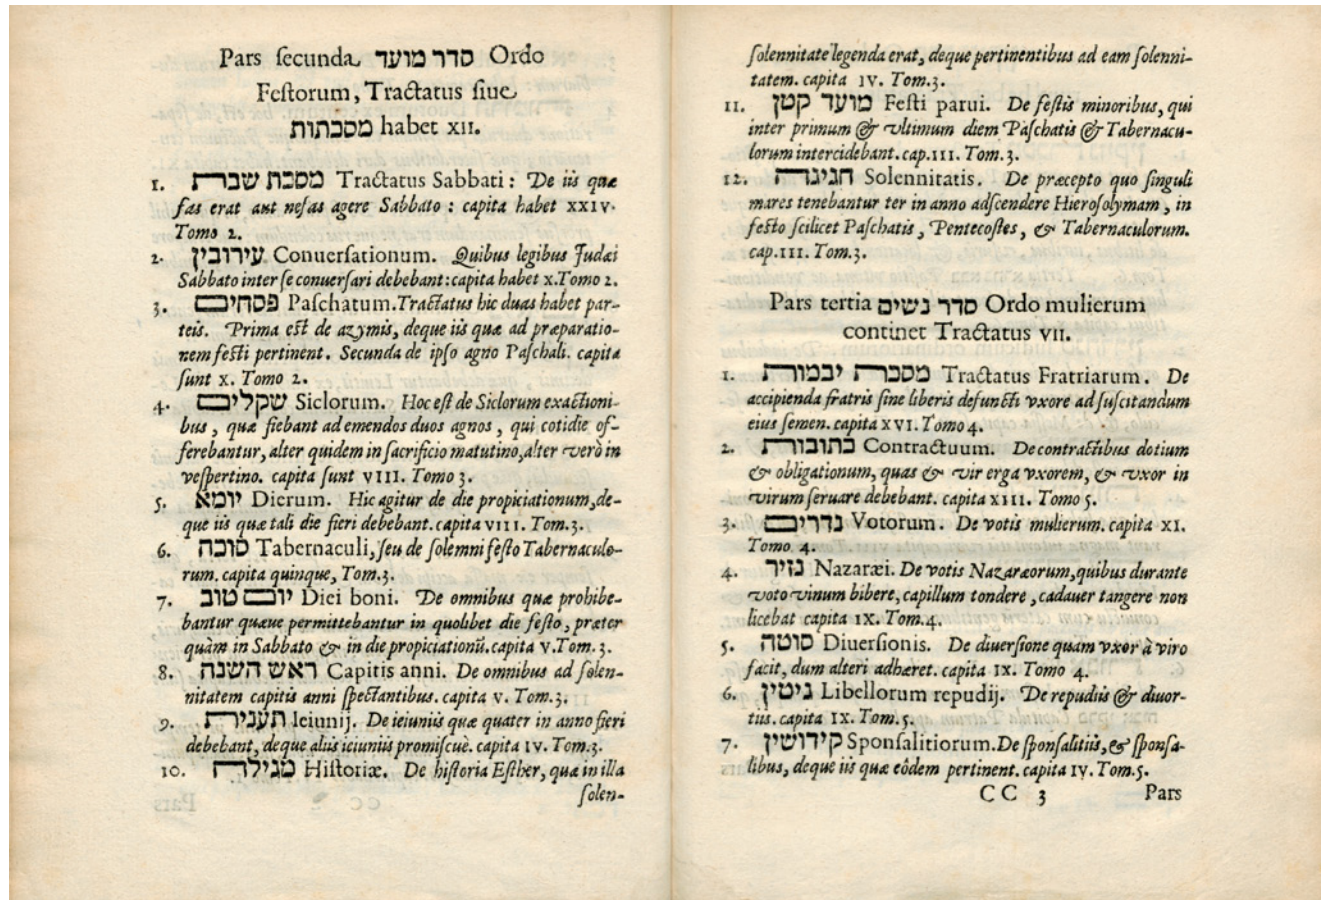 Pars ſecunda סדר מועד Ordo
Feſtorum, Tractatus ſiue
מסכתות habet XII.
1. מסכת שבת Tractatus Sabbati: De iis quæ
fas erat aut nefas agere Sabbato: capita habet XXIV.
Tomo 2.
2. עירובין Conuerſationum. Quibus legibus Judæi
Sabbato inter ſe conuerſari debebant: capita habet X. Tomo 2.
3. פסחים Paſchatum. Tractatus hic duas habet par-
teis. Prima eſt de azymis, deque iis quæ ad præparatio-
nem feſti pertinent. Secunda de ipſo agno Paſchali. capita
ſunt X. Tomo 2.
4. שקלים Siclorum. Hoc eſt de Siclorum exactioni-
bus, quæ fiebant ad emendos duos agnos, qui cotidie of-
ferebantur, alter quidem in ſacrificio matutino, alter verò in
veſpertino. capita ſunt VIII. Tomo 3.
5. יומא Dierum. Hic agitur de die propiciationum, de-
que iis quæ tali die fieri debebant. capita VIII. Tom. 3.
6. סוכה Tabernaculi, ſeu de ſolemni feſto Tabernaculo-
rum. capita quinque, Tom. 3.
7. יום טוב Diei boni. De omnibus quæ prohibe-
bantur quæue permittebantur in quolibet die feſto, præter
quàm in Sabbato & in die propiciationũ. capita V. Tom. 3.
8. ראש השנה Capitis anni. De omnibus ad ſolen-
nitatem capitis anni ſpectantibus. capita V. Tom. 3.
9. תענית Ieiunij. De ieiuniis quæ quater in anno fieri
debebant, deque aliis ieiuniis promiſcuè. capita IV. Tom. 3.
10. מגילה Hiſtoriæ. De hiſtoria Eſther, quæ in illa
ſolen-
ſolennitate legenda erat, deque pertinentibus ad eam ſolenni-
tatem. capita IV. Tom. 3.
11. מועד קטן Feſti parui. De feſtis minoribus, qui
inter primum & vltimum diem Paſchatis & Tabernacu-
lorum intercidebant. cap. III. Tom. 3.
12. חגיגה Solennitatis. De præcepto quo ſinguli
mares tenebantur ter in anno adſcendere Hieroſolymam, in
feſto ſcilicet Paſchatis, Pentecoſtes, & Tabernaculorum.
cap. III. Tom. 3.
Pars tertia סדר נשים Ordo mulierum
continet Tractatus VII.
1. מסכת יבמות Tractatus Fratriarum. De
accipienda fratris ſine liberis defuncti vxore ad ſuſcitandum
eius ſemen. capita XVI. Tomo 4.
2. כתובות Contractuum. De contractibus dotium
& obligationum, quas & vir erga vxorem, & vxor in
virum ſeruare debebant. capita XIII. Tomo 5.
3. נדרים Votorum. De votis mulierum. capita XI.
Tomo 4.
4. נזיר Nazaræi. De votis Nazaræorum, quibus durante
voto vinum bibere, capillum tondere, cadauer tangere non
licebat capita IX. Tom. 4.
5. סוטה Diuerſionis. De diuerſione quam vxor à viro
facit, dum alteri adhæret. capita IX. Tomo 4.
6. גיטין Libellorum repudij. De repudiis & diuor-
tiis. capita IX. Tom. 5.
7. קידושין Sponſalitiorum. De ſponſalitiis, & ſponſa-
libus, deque iis quæ eôdem pertinent. capita IV. Tom. 5.
CC 3 Pars